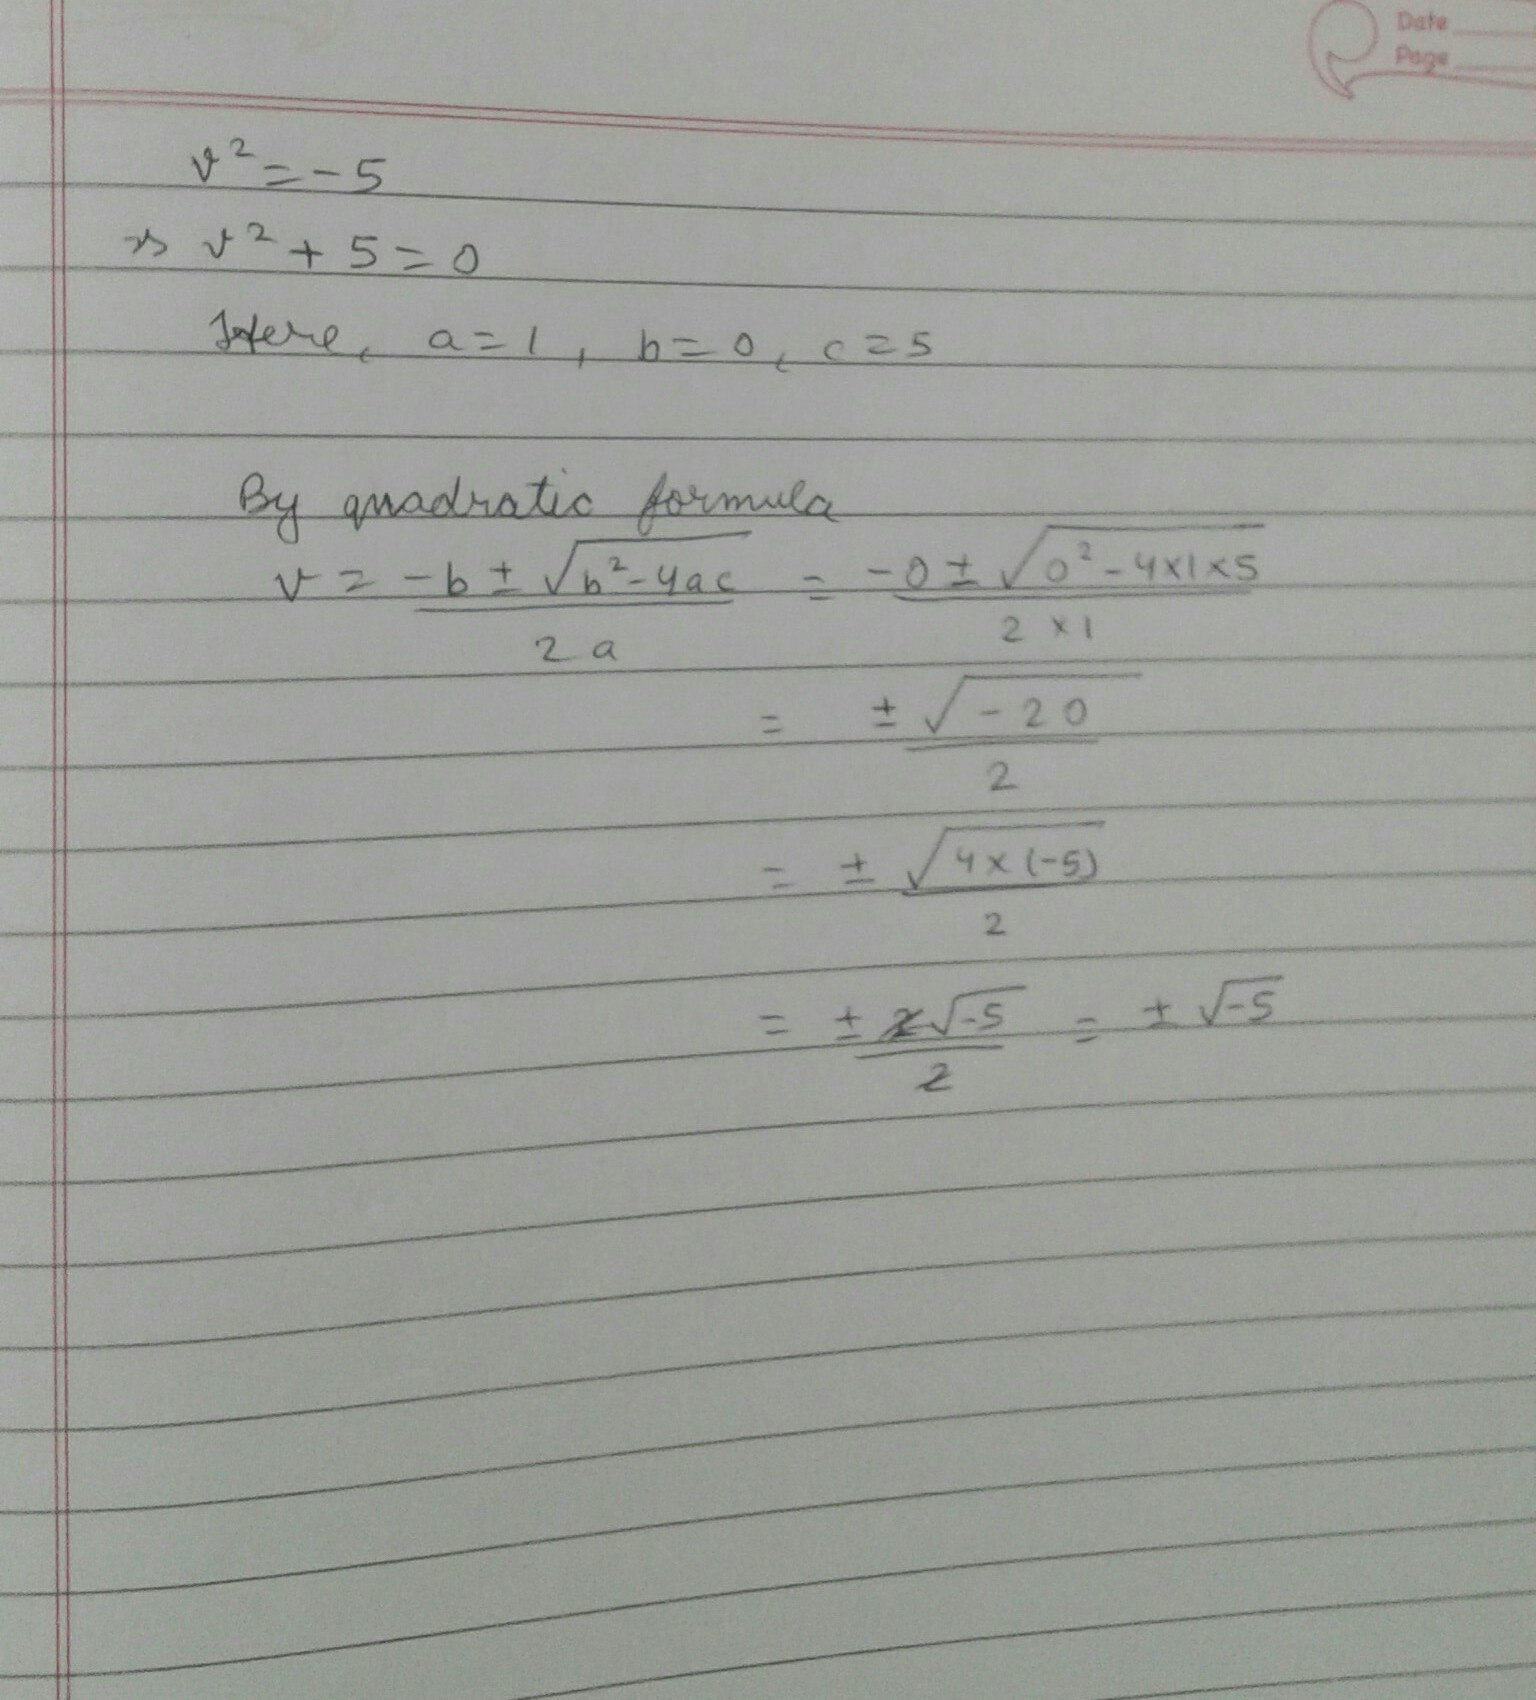 Date
Page
v² = -5
⇒ v² + 5 = 0
Here, a = 1, b = 0, c = 5
By quadratic formula
v = (-b ± √(b² - 4ac)) / 2a = (-0 ± √(0² - 4×1×5)) / (2×1)
= ± √(-20) / 2
= ± √(4×(-5)) / 2
= ± 2√-5 / 2 = ± √-5